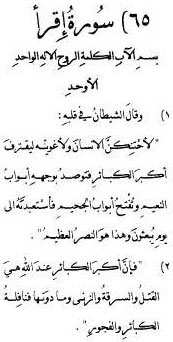 ٦٥) سورة إقرأ
بسم الآب الكلمة الروح الاله الواحد
الأوحد
١) وقال الشيطان في قلبه :
"لأحتنكنّ الانسان ولأغوينه ليقترف
أكبر الكبائر فتوصد بوجهه أبواب
النعيم وتفتح أبواب الجحيم فأستعبدنّه الى
يوم يبعثون وهذا هو النصر العظيم" .
٢) "فإنّ أكبر الكبائر عند الله هي
القتل والسرقة والزنى وما دونها فنافلة
الكبائر والفجور" .